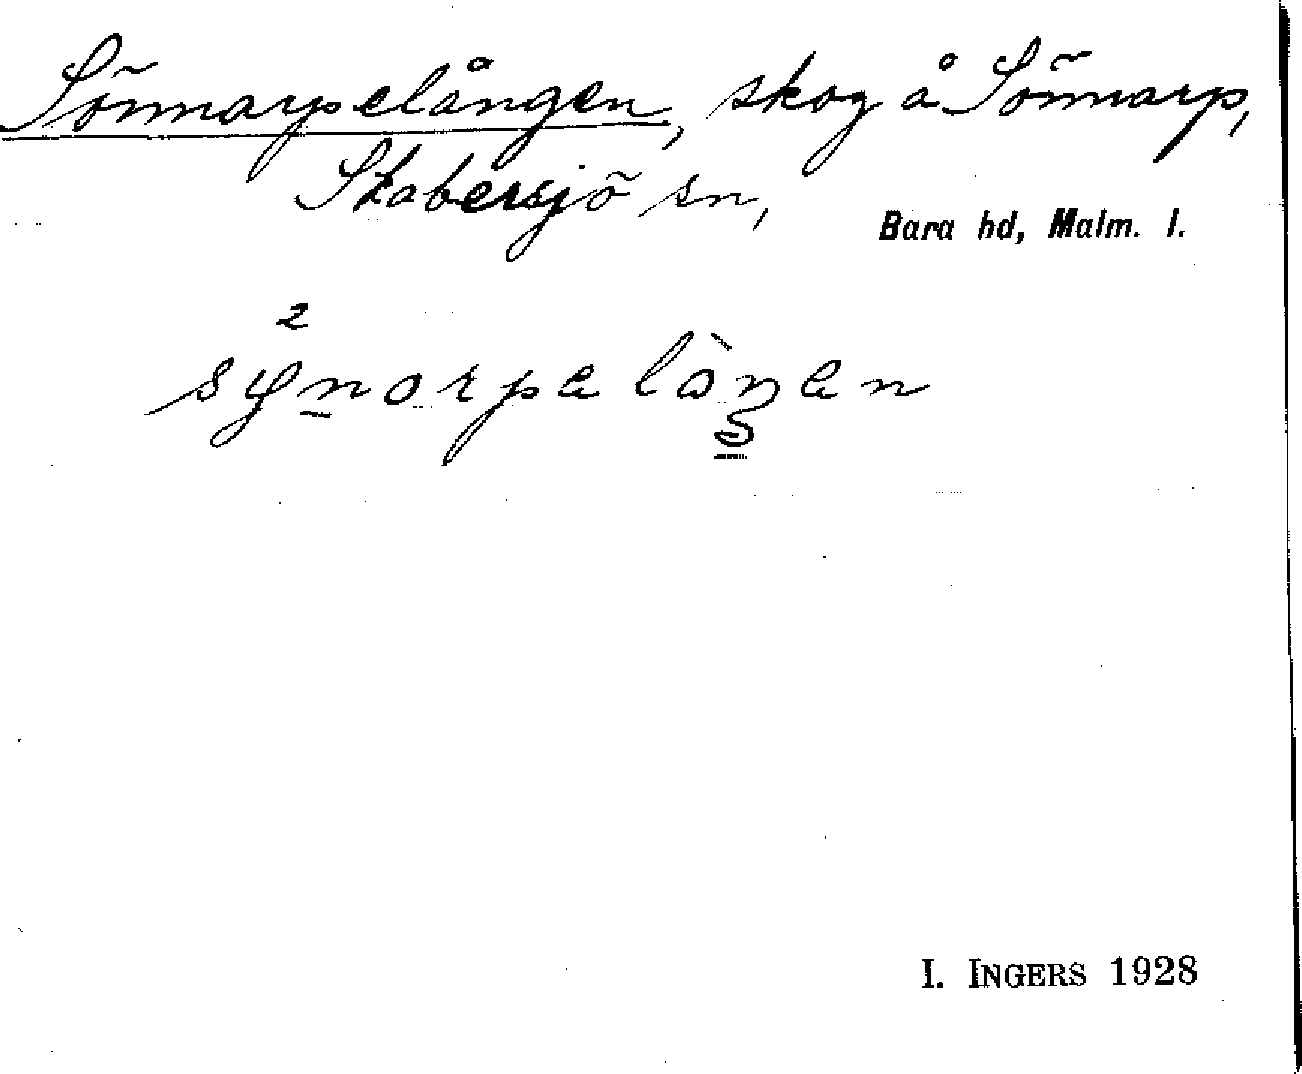 Sönnarpelången, skog å Sönnarp,
Skabersjö sn,
Bara hd, Malm. l.
2
synorpe làŋen
I. INGERS 1928